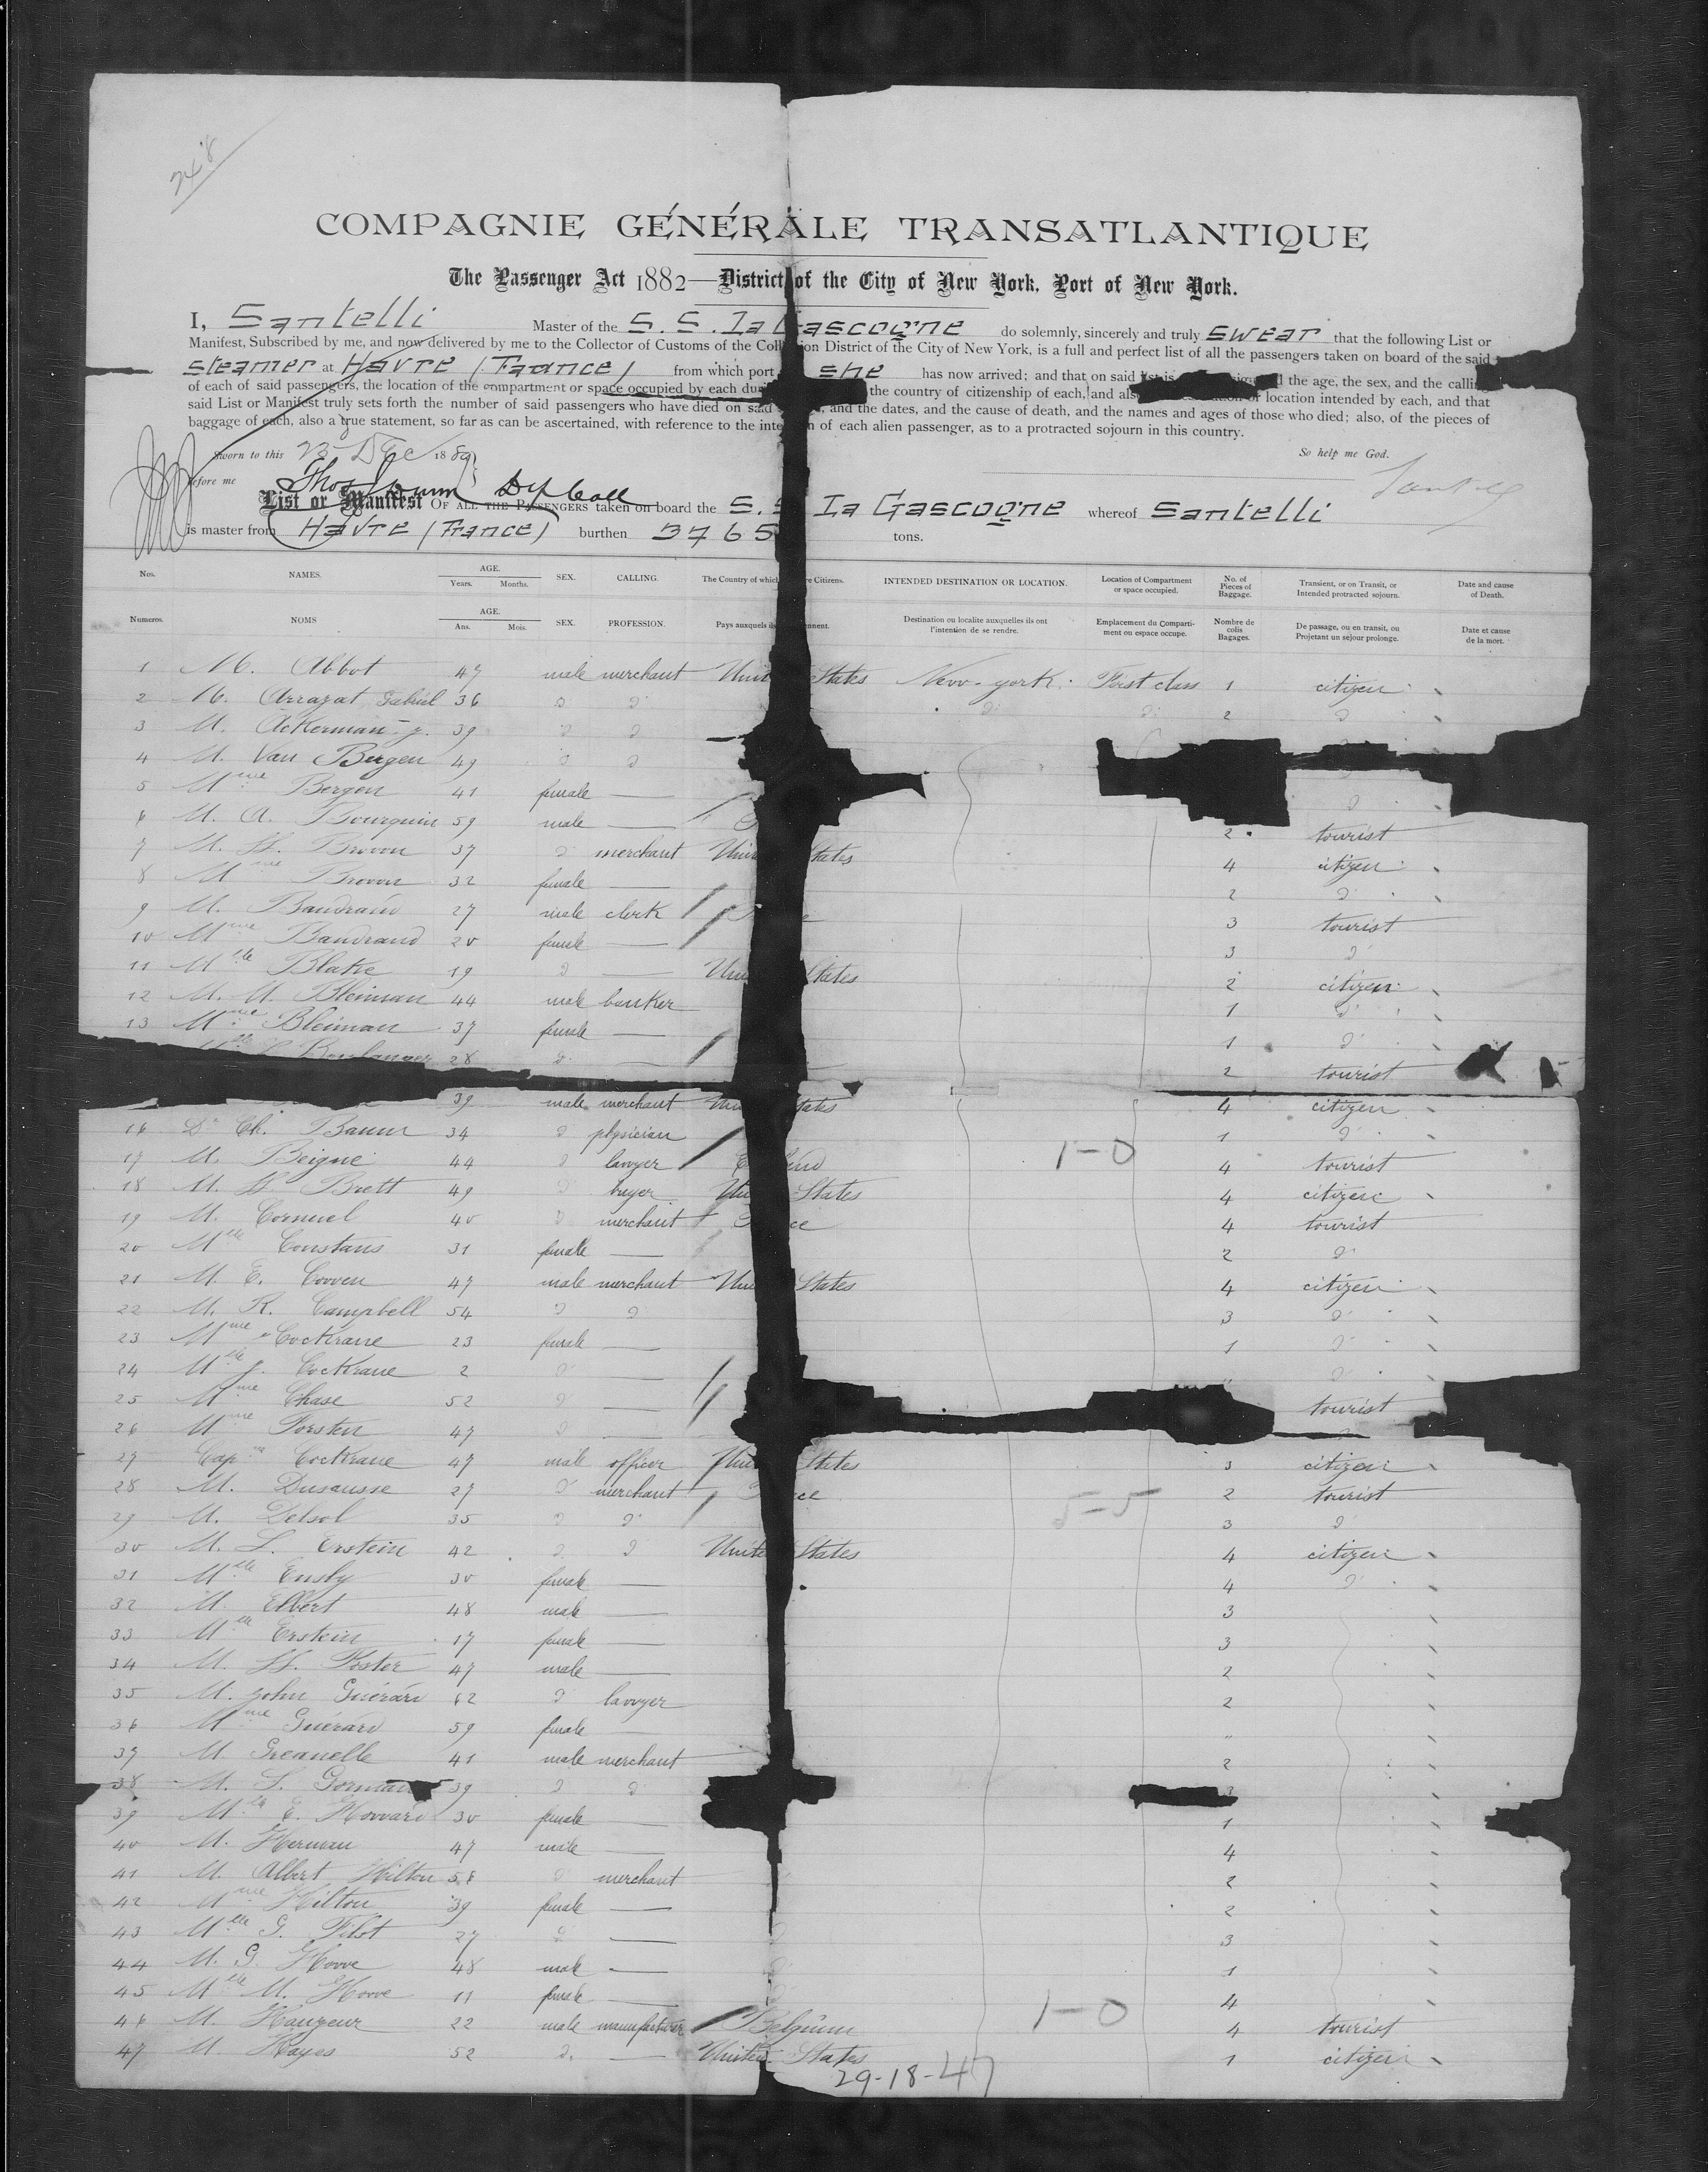 248
COMPAGNIE GÉNÉRALE TRANSATLANTIQUE
The Passenger Act 1882—District of the City of New York, Port of New York.
I, Santelli Master of the S.S. La Gascogne do solemnly, sincerely and truly swear that the following List or
Manifest, Subscribed by me, and now delivered by me to the Collector of Customs of the Coll ion District of the City of New York, is a full and perfect list of all the passengers taken on board of the said
steamer at Havre (France) from which port she has now arrived; and that on said the age, the sex, and the calling
of each of said passengers, the location of the compartment or space occupied by each the country of citizenship of each, and location intended by each, and that
said List or Manifest truly sets forth the number of said passengers who have died on said and the dates, and the cause of death, and the names and ages of those who died; also, of the pieces of
baggage of each, also a true statement, so far as can be ascertained, with reference to the of each alien passenger, as to a protracted sojourn in this country.
Sworn to this 23 Dec 1889 So help me God.
before me
List or Manifest OF ALL THE PASSENGERS taken on board the S.S La Gascogne whereof Santelli
is master from Havre (France) burthen 3765 tons.
Nos. NAMES. AGE. Years. Months. SEX. CALLING. The Country of which re Citizens. INTENDED DESTINATION OR LOCATION. Location of Compartment or space occupied. No. of Pieces of Baggage. Transient, or on Transit, or Intended protracted sojourn. Date and cause of Death.
Numeros. NOMS AGE. Ans. Mois. SEX. PROFESSION. Pays auxquels ils nnent. Destination ou localite auxquelles ils ont l'intention de se rendre. Emplacement du Comparti-ment ou espace occupe. Nombre de colis Bagages. De passage, ou en transit, ou Projetant un sejour prolonge. Date et cause de la mort.
1 M. Abbot 47 male merchant Unit States New-york. First class 1 citizen
2 M. Arrazat Gabriel 36 d d d d 2 d
3 M. Ackerman j. 39 d d
4 M. Van Bergen 49 d d
5 Mme Bergen 41 female — d
6 M. A. Bourquin 59 male — 2 tourist
7 M. H. Brown 37 d merchant Uni tates 4 citizen
8 Mme Brown 32 female — 2 d
9 M. Baudrand 27 male clerk 3 tourist
10 Mme Baudrand 20 female — 3 d
11 Mlle Blake 19 d — Uni States 2 citizen
12 M. M. Bleiman 44 male banker 1 d
13 Mme Bleiman 37 female — 1 d
Boulanger 28 d — 2 tourist
39 male merchant Uni tates 4 citizen
16 Dr Ch. Baum 34 d physician 1 d
17 M. Beigne 44 d lawyer E nd 4 tourist
18 M. H. Brett 49 d buyer Un States 4 citizen
19 M. Cornuel 40 d merchant ce 4 tourist
20 Mlle Constans 31 female — 2 d
21 M. E. Cowen 47 male merchant Uni States 4 citizen
22 M. R. Campbell 54 d d 3 d
23 Mme Cockrane 23 female — 1 d
24 Mlle J. Cockrane 2 d — " d
25 Mme Chase 52 d — tourist
26 Mme Porsten 47 d —
27 Capne Cockrane 47 male officer Uni States 3 citizen
28 M. Dusausse 27 d merchant ce 2 tourist
29 M. Delsol 35 d d 3 d
30 M. L. Erstein 42 d d Unite States 4 citizen
31 Mlle Ensly 30 female — 4 d
32 M. Elbert 48 male — 3
33 Mlle Erstein 17 female — 3
34 M. H. Foster 47 male — 2
35 M. John Guérard 62 d lawyer 2
36 Mme Guérard 59 female — "
37 M. Greanelle 41 male merchant 2
38 M. S. Gorman 39 d d
39 Mlle E. Howard 30 female — 1
40 M. Herman 47 male — 4
41 M. Albert Hilton 58 d merchant 2
42 Mme Hilton 39 female — 2
43 Mlle G. Filot 27 d — 3
44 M. G. Howe 48 male — 1
45 Mlle M. Howe 11 female — 4
46 M. Hauzeur 22 male manufacturer Belgium 4 tourist
47 M. Hayes 52 d. — United States 1 citizen
1-0
5-5
1-0
29-18-47